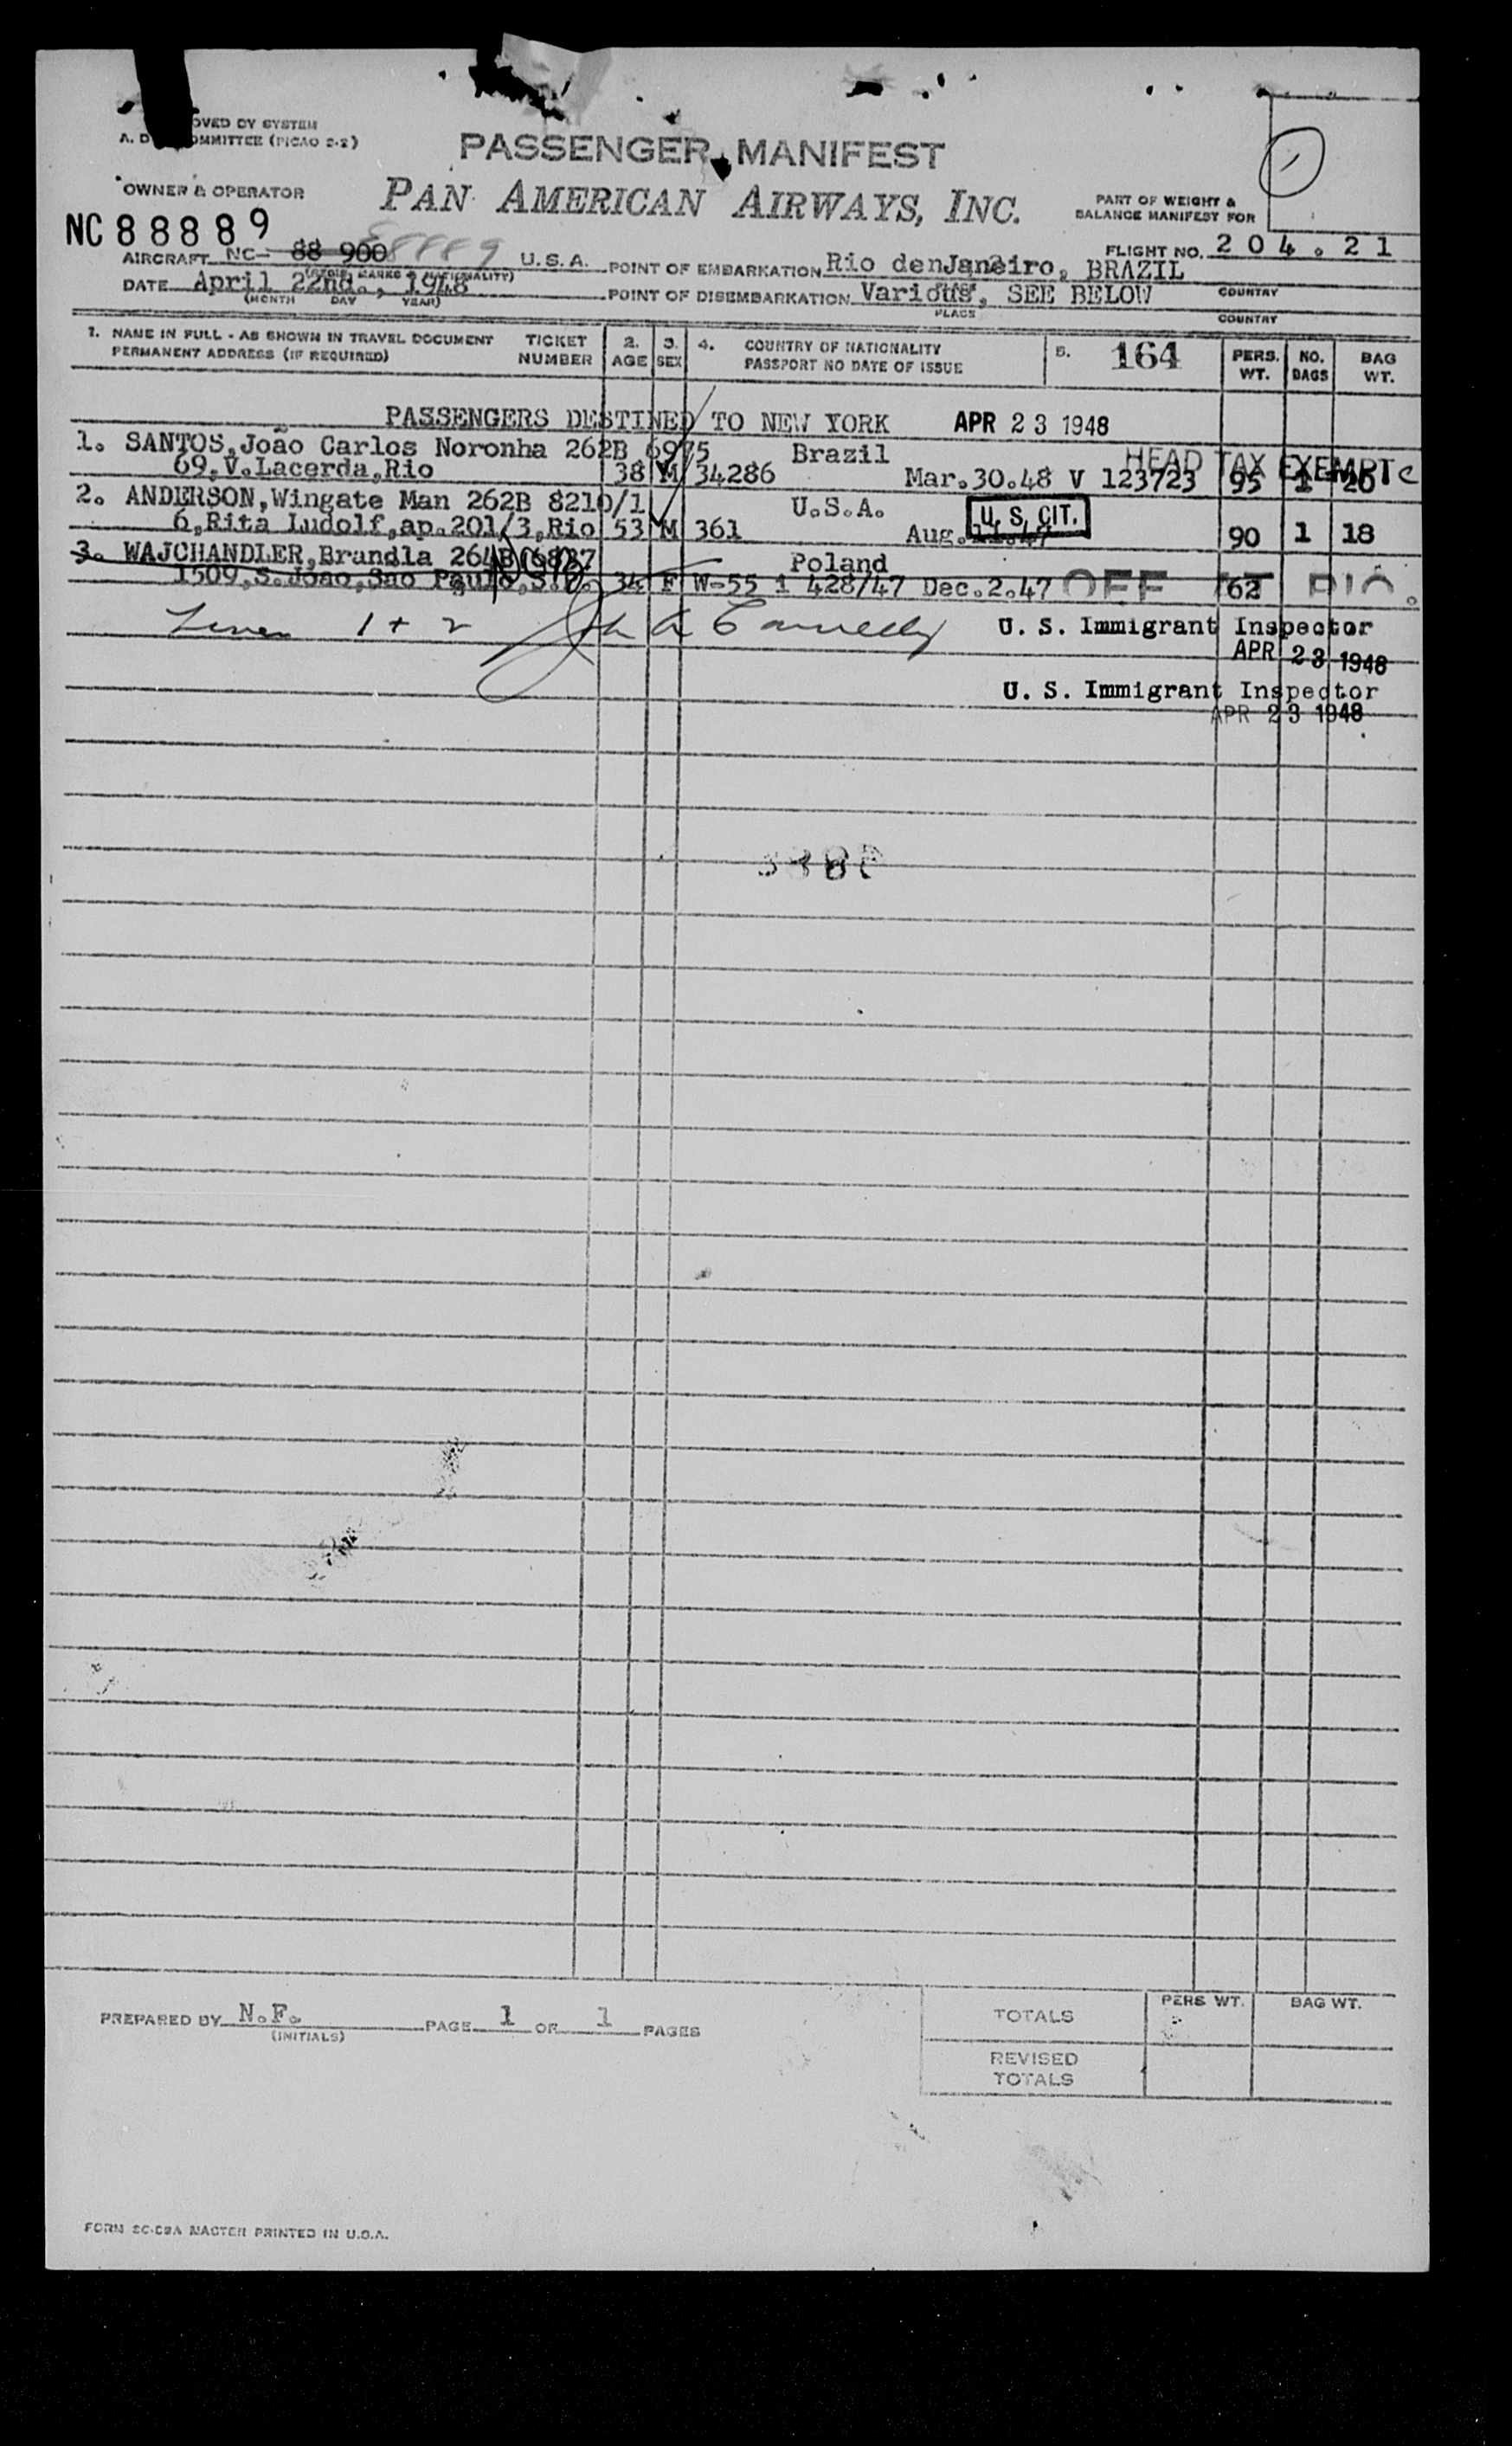 OVED BY SYSTEM
A. D OMMITTEE (PICAO 2-2)
PASSENGER MANIFEST
OWNER & OPERATOR
PAN AMERICAN AIRWAYS, INC.
PART OF WEIGHT &
BALANCE MANIFEST FOR
NC 88889
AIRCRAFT NC- 88 900 88889 U.S.A. POINT OF EMBARKATION Rio denJaneiro, BRAZIL FLIGHT NO. 204.21
DATE April 22nd., 1948 POINT OF DISEMBARKATION Various, SEE BELOW COUNTRY
(MONTH DAY YEAR) PLACE COUNTRY
1. NAME IN FULL - AS SHOWN IN TRAVEL DOCUMENT TICKET 2. 3. 4. COUNTRY OF NATIONALITY 5. 164 PERS. NO. BAG
PERMANENT ADDRESS (IF REQUIRED) NUMBER AGE SEX PASSPORT NO DATE OF ISSUE WT. BAGS WT.
PASSENGERS DESTINED TO NEW YORK APR 23 1948
1. SANTOS,João Carlos Noronha 262B 6975 Brazil HEAD TAX EXEMPT
69,V.Lacerda,Rio 38 M 34286 Mar.30.48 V 123723 95 1 20
2. ANDERSON,Wingate Man 262B 8210/1 U.S.A. U.S. CIT.
6,Rita Ludolf,ap.201/3,Rio 53 M 361 Aug. 90 1 18
3. WAJCHANDLER,Brandla 264B 6837 Poland
1509,S.João,São Paulo,S.P. 34 F W-55 i 428/47 Dec.2.47 OFF AT RIO. 62
1 + 2 U. S. Immigrant Inspector
APR 23 1948
U. S. Immigrant Inspector
APR 23 1948
PREPARED BY N.F. PAGE 1 OF 1 PAGES
(INITIALS)
TOTALS PERS WT. BAG WT.
REVISED
TOTALS
FORM MASTER PRINTED IN U.S.A.